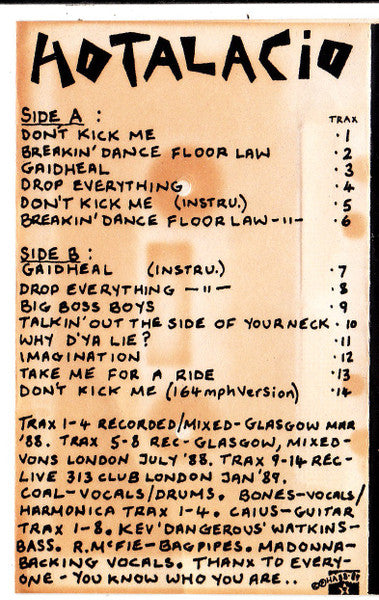 HOTALACIO
SIDE A : TRAX
DON'T KICK ME · 1
BREAKIN' DANCE FLOOR LAW · 2
GAIDHEAL · 3
DROP EVERYTHING · 4
DON'T KICK ME (INSTRU.) · 5
BREAKIN' DANCE FLOOR LAW -11- · 6
SIDE B :
GAIDHEAL (INSTRU.) · 7
DROP EVERYTHING -11- · 8
BIG BOSS BOYS · 9
TALKIN' OUT THE SIDE OF YOUR NECK · 10
WHY D'YA LIE? · 11
IMAGINATION · 12
TAKE ME FOR A RIDE · 13
DON'T KICK ME (164mph Version) · 14
TRAX 1-4 RECORDED/MIXED-GLASGOW MAR
'88. TRAX 5-8 REC-GLASGOW, MIXED-
VONS LONDON JULY '88. TRAX 9-14 REC-
LIVE 313 CLUB LONDON JAN '89.
COAL-VOCALS/DRUMS. BONES-VOCALS/
HARMONICA TRAX 1-4. CAIUS-GUITAR
TRAX 1-8. KEV 'DANGEROUS' WATKINS-
BASS. R.McFIE-BAGPIPES. MADONNA-
BACKING VOCALS. THANX TO EVERY-
ONE - YOU KNOW WHO YOU ARE..